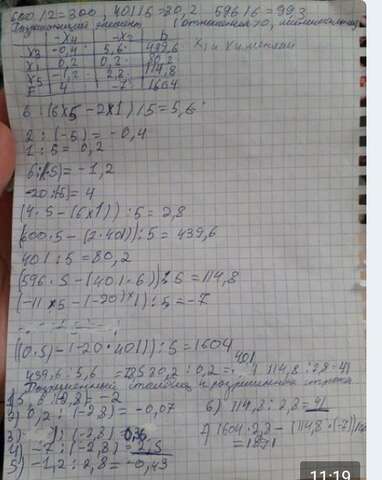 600/2=300, 401/5=80,2 596/6=99,3
Разрешающий элемент (отношение >0,
x1 и x4 меняем
-x4 -x2 b
x3 -0,4 5,6 439,6
x1 0,2 0,2 80,2
x5 -1,2 2,8 114,8
F 4 -7 1604
(6×5-2×1)/5=5,6
2:(-5)=-0,4
1:5=0,2
6:(-5)=-1,2
-20:(-5)=4
(4·5-(6×1)):5=2,8
(600·5-(2·401)):5=439,6
401:5=80,2
(596·5-(401·6)):5=114,8
(-11×5-(-20)×1):5=-7
(0·5)-(-20·401)):5=1604
439,6:5,6 80,2:0,2=401 114,8:2,8=41
Разрешенный столбец и разрешенная строка
1) 5,6:(-2,8)=-2
2) 0,2:(-2,8)=-0,07
3) 1:(-2,8)
4) -7:(-2,8)=2,5
5) -1,2:2,8=-0,43
6) 114,8:2,8=41
7) (1604·2,8-(114,8·(-7))
=1891
11:19